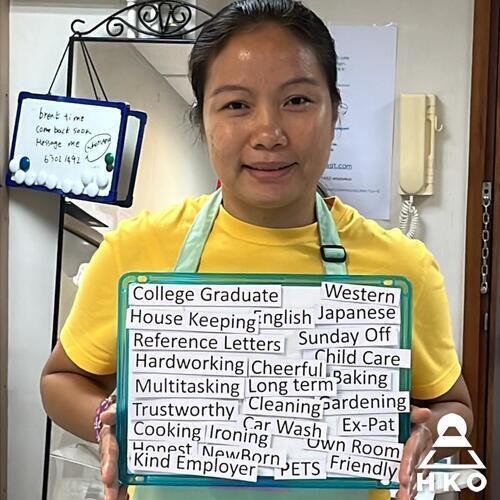 brent time
come back soon
Message me
College Graduate Western
House Keeping English Japanese
Reference Letters Sunday Off
Child Care
Hardworking Cheerful
Multitasking Long term Baking
Trustworthy Cleaning Gardening
Cooking Ironing Car Wash Ex-Pat
Honest NewBorn Own Room
Kind Employer PETS Friendly
HKO